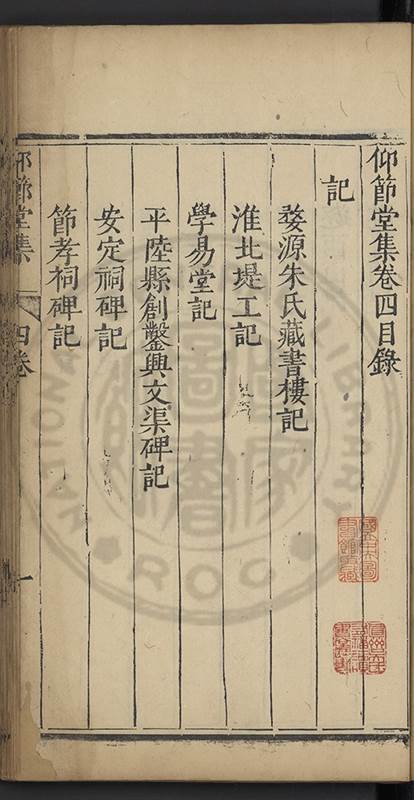 仰節堂集卷四目錄
記
婺源朱氏藏書樓記
淮北堤工記
學易堂記
平陸縣創鑿興文渠碑記
安定祠碑記
節孝祠碑記
仰節堂集 四卷 一